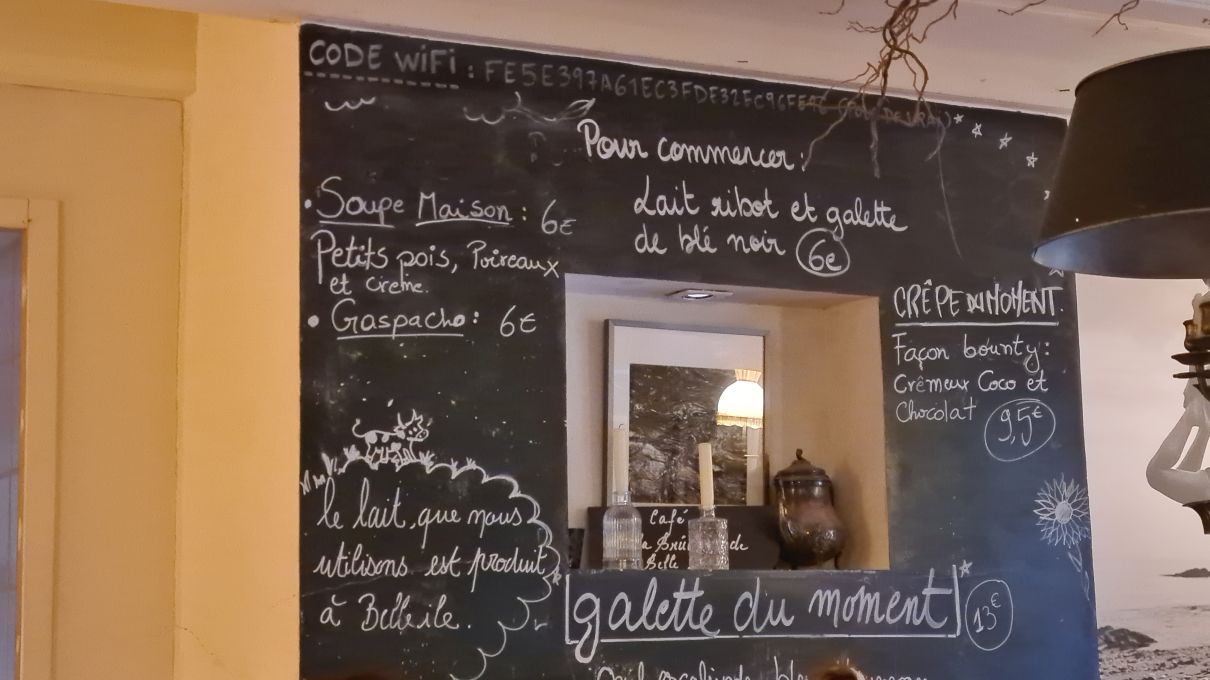 CODE WIFI : FE5E397A61EC3FDF32EC96FE4E (TOUT DE VRAI)
Pour commencer :
Lait ribot et galette
de blé noir 6€
• Soupe Maison : 6€
Petits pois, Poireaux
et crème.
• Gaspacho : 6€
CRÊPE DU MOMENT.
Façon bounty :
Crêmeux Coco et
Chocolat 9,5€
le lait, que nous
utilisons est produit
à Belle ile.
Café
de
Belle
galette du moment 13€